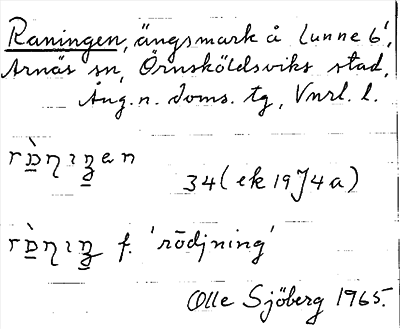 Raningen, ängsmark å Lunne 6¹,
Arnäs sn, Örnsköldsviks stad,
Ång. n. doms. tg, Vnrl. l.
34 (ek 19J4a)
f. 'rödjning'
Olle Sjöberg 1965.